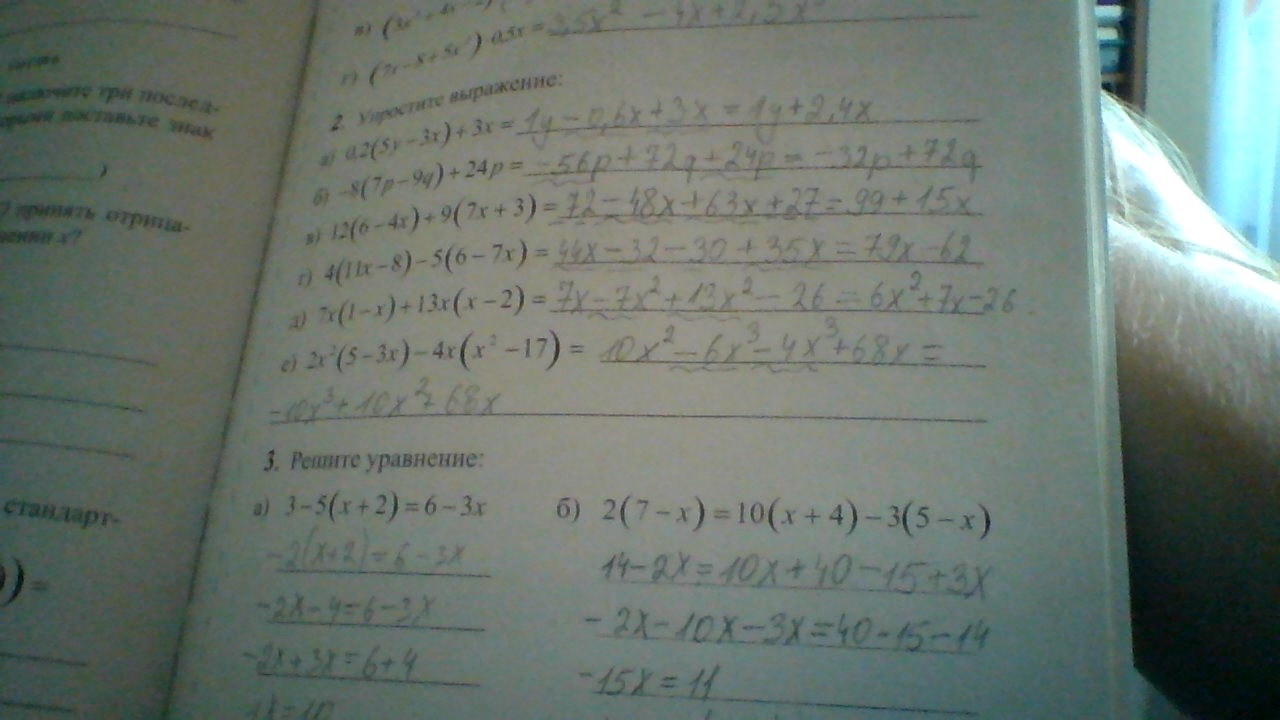 в) (3x
г) (7x − 8 + 5x²) · 0,5x = 3,5x² − 4x + 2,5x³
ность
включите три послед-
поставьте знак
)
принять отрица-
x?
стандарт-
)) =
2. Упростите выражение:
а) 0,2(5y − 3x) + 3x = 1y − 0,6x + 3x = 1y + 2,4x
б) −8(7p − 9q) + 24p = −56p + 72q + 24p = −32p + 72q
в) 12(6 − 4x) + 9(7x + 3) = 72 − 48x + 63x + 27 = 99 + 15x
г) 4(11x − 8) − 5(6 − 7x) = 44x − 32 − 30 + 35x = 79x − 62
д) 7x(1 − x) + 13x(x − 2) = 7x − 7x² + 13x² − 26 = 6x² + 7x − 26
е) 2x²(5 − 3x) − 4x(x² − 17) = 10x² − 6x³ − 4x³ + 68x =
−10x³ + 10x² + 68x
3. Решите уравнение:
а) 3 − 5(x + 2) = 6 − 3x
−2(x + 2) = 6 − 3x
−2x − 4 = 6 − 3x
−2x + 3x = 6 + 4
1x = 10
б) 2(7 − x) = 10(x + 4) − 3(5 − x)
14 − 2x = 10x + 40 − 15 + 3x
−2x − 10x − 3x = 40 − 15 − 14
−15x = 11